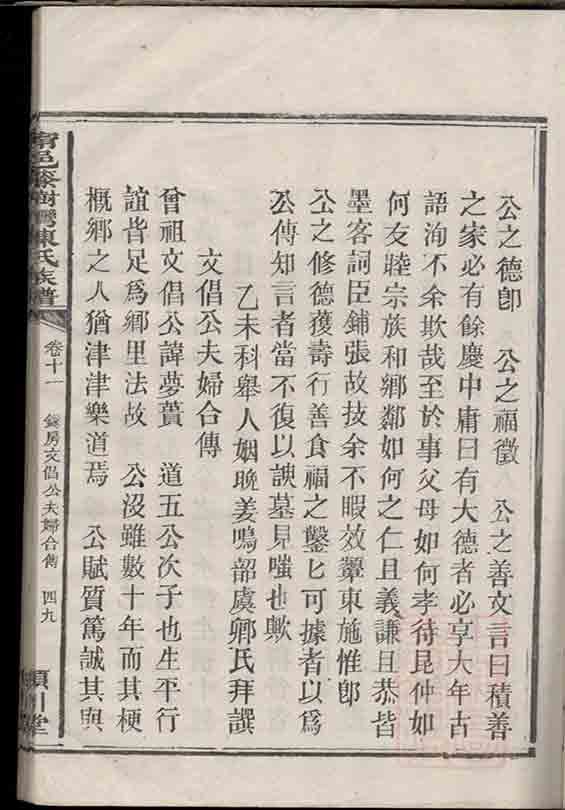 公之德卽 公之福徵 公之善文言曰積善
之家必有餘慶中庸曰有大德者必享大年古
語洵不余欺哉至於事父母如何孝待昆仲如
何友睦宗族和鄉鄰如何之仁且義謙且恭皆
墨客詞臣鋪張故技余不暇效顰東施惟卽
公之修德獲壽行善食福之鑿鑿可據者以爲
公傳知言者當不復以諛墓見嗤也歟
乙未科舉人姻晚姜鳴韶虞卿氏拜譔
文倡公夫婦合傳
曾祖文倡公諱夢賚 道五公次子也生平行
誼皆足爲鄉里法故 公沒雖數十年而其梗
概鄉之人猶津津樂道焉 公賦質篤誠其與
甯邑 樹灣陳氏族譜
卷十一
房文倡公夫婦合傳
四九
川堂